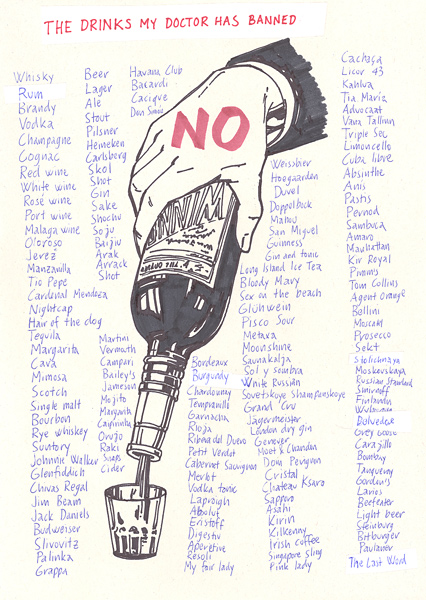 THE DRINKS MY DOCTOR HAS BANNED
NO
Whisky
Rum
Brandy
Vodka
Champagne
Cognac
Red wine
White wine
Rosé wine
Port wine
Malaga wine
Oloroso
Jerez
Manzanilla
Tio Pepe
Cardenal Mendoza
Nightcap
Hair of the dog
Tequila
Margarita
Cava
Mimosa
Scotch
Single malt
Bourbon
Rye whiskey
Suntory
Johnnie Walker
Glenfiddich
Chivas Regal
Jim Beam
Jack Daniels
Budweiser
Slivovitz
Palinka
Grappa
Beer
Lager
Ale
Stout
Pilsner
Heineken
Carlsberg
Skol
Shot
Gin
Sake
Shochu
Soju
Baijiu
Arak
Arrack
Shot
Martini
Vermouth
Campari
Bailey's
Jameson
Mojito
Margarita
Caipirinha
Orujo
Raki
Cider
Havana Club
Bacardi
Cacique
Bordeaux
Burgundy
Chardonnay
Tempranillo
Garnacha
Rioja
Ribera del Duero
Petit Verdot
Cabernet Sauvignon
Merlot
Vodka tonic
Laproigh
Absolut
Eristoff
Digestiv
Aperetive
Resoli
My fair lady
Weissbier
Hoegaarden
Duvel
Doppelbock
Mahou
San Miguel
Guinness
Gin and tonic
Long Island Ice Tea
Bloody Mary
Sex on the beach
Glühwein
Pisco Sour
Metaxa
Moonshine
Saunakalja
Sol y sombra
White Russian
Sovetskoye Shampanskoye
Grand Cru
Jägermeister
London dry gin
Genever
Moet & Chandon
Dom Perignon
Cristal
Chateau Ksara
Sapporo
Asahi
Kirin
Kilkenny
Irish coffee
Singapore Sling
Pink lady
Cachaça
Licor 43
Kahlua
Tia Maria
Advocaat
Vana Tallinn
Triple Sec
Limoncello
Cuba libre
Absinthe
Anis
Pastis
Pernod
Sambuca
Amaro
Manhattan
Kir Royal
Pimms
Tom Collins
Agent orange
Bellini
Moscato
Prosecco
Sekt
Stolichnaya
Moskovskaya
Russian Standard
Smirnoff
Finlandia
Belvedere
Grey Goose
Carajillo
Bombay
Tanqueray
Gordon's
Larios
Beefeater
Light beer
Steinburg
Bitburger
Paulaner
The Last Word